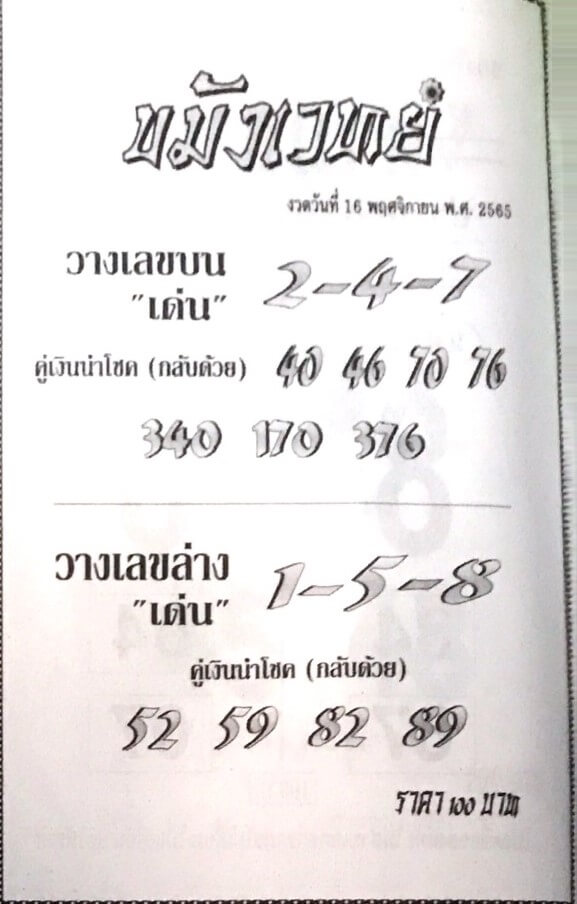 ขมังเวทย์
งวดวันที่ 16 พฤศจิกายน พ.ศ. 2565
วางเลขบน 2-4-7
"เด่น"
คู่เงินนำโชค (กลับด้วย) 40 46 70 76
340 170 376
วางเลขล่าง 1-5-8
"เด่น"
คู่เงินนำโชค (กลับด้วย)
52 59 82 89
ราคา 100 บาท